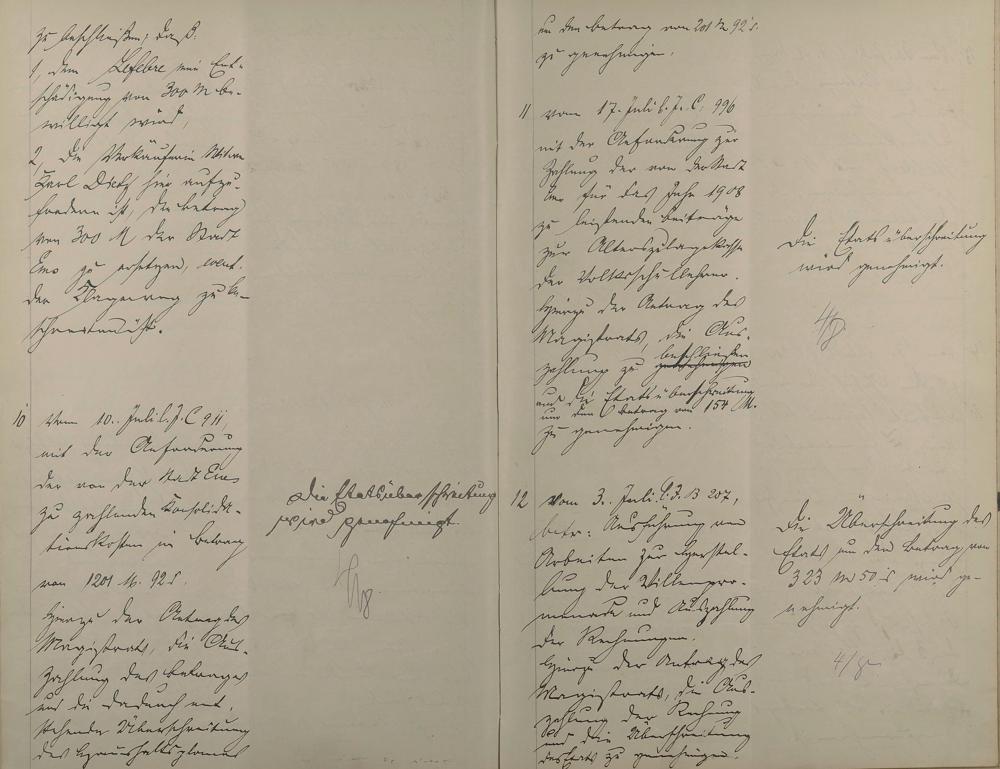 zu beschließen, daß:
1, dem Lefebre eine Ent-
schädigung von 300 M be-
willigt wird,
2, die Verkäuferin Witwe
Karl Dietz hier aufzu-
fordern ist, den Betrag
von 300 M der Stadt
Ems zu ersetzen, event.
der Klageweg zu be-
schreiten ist.
10 vom 10. Juli l. J. C 911,
mit der Anforderung
der von der Stadt Ems
zu zahlenden Konsolida-
tionskosten im Betrag
von 1201 M. 92 S.
Hierzu der Antrag des
Magistrats, die Aus-
zahlung des Betrages
und die dadurch ent-
stehende Überschreitung
des Haushaltsplanes
Die Etatsüberschreitung
wird genehmigt.
um den Betrag von 201 M 92 S.
zu genehmigen.
11 vom 17. Juli l. J. C. 996
mit der Anforderung zur
Zahlung der von der Stadt
Ems für das Jahr 1908
zu leistenden Beiträge
zur Alterszulagekasse
der Volksschullehrer.
Hierzu der Antrag des
Magistrats, die Aus-
zahlung zu beschließen
und die Etatsüberschreitung
um den Betrag von 154 M.
zu genehmigen.
Die Etatsüberschreitung
wird genehmigt.
12 vom 3. Juli l. J. B 207,
betr: Ausführung von
Arbeiten zur Herstel-
lung der Villenpro-
menade und Auszahlung
der Rechnungen.
Hierzu der Antrag des
Magistrats, die Aus-
zahlung der Rechnung
und die Überschreitung
des Etats zu genehmigen.
Die Überschreitung des
Etats um den Betrag von
323 M 50 S wird ge-
nehmigt.